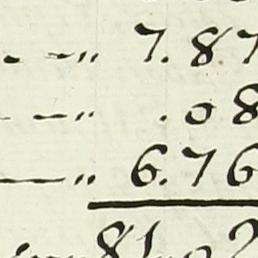 - - " 7.87
- - " .08
— " 6.76
81.02